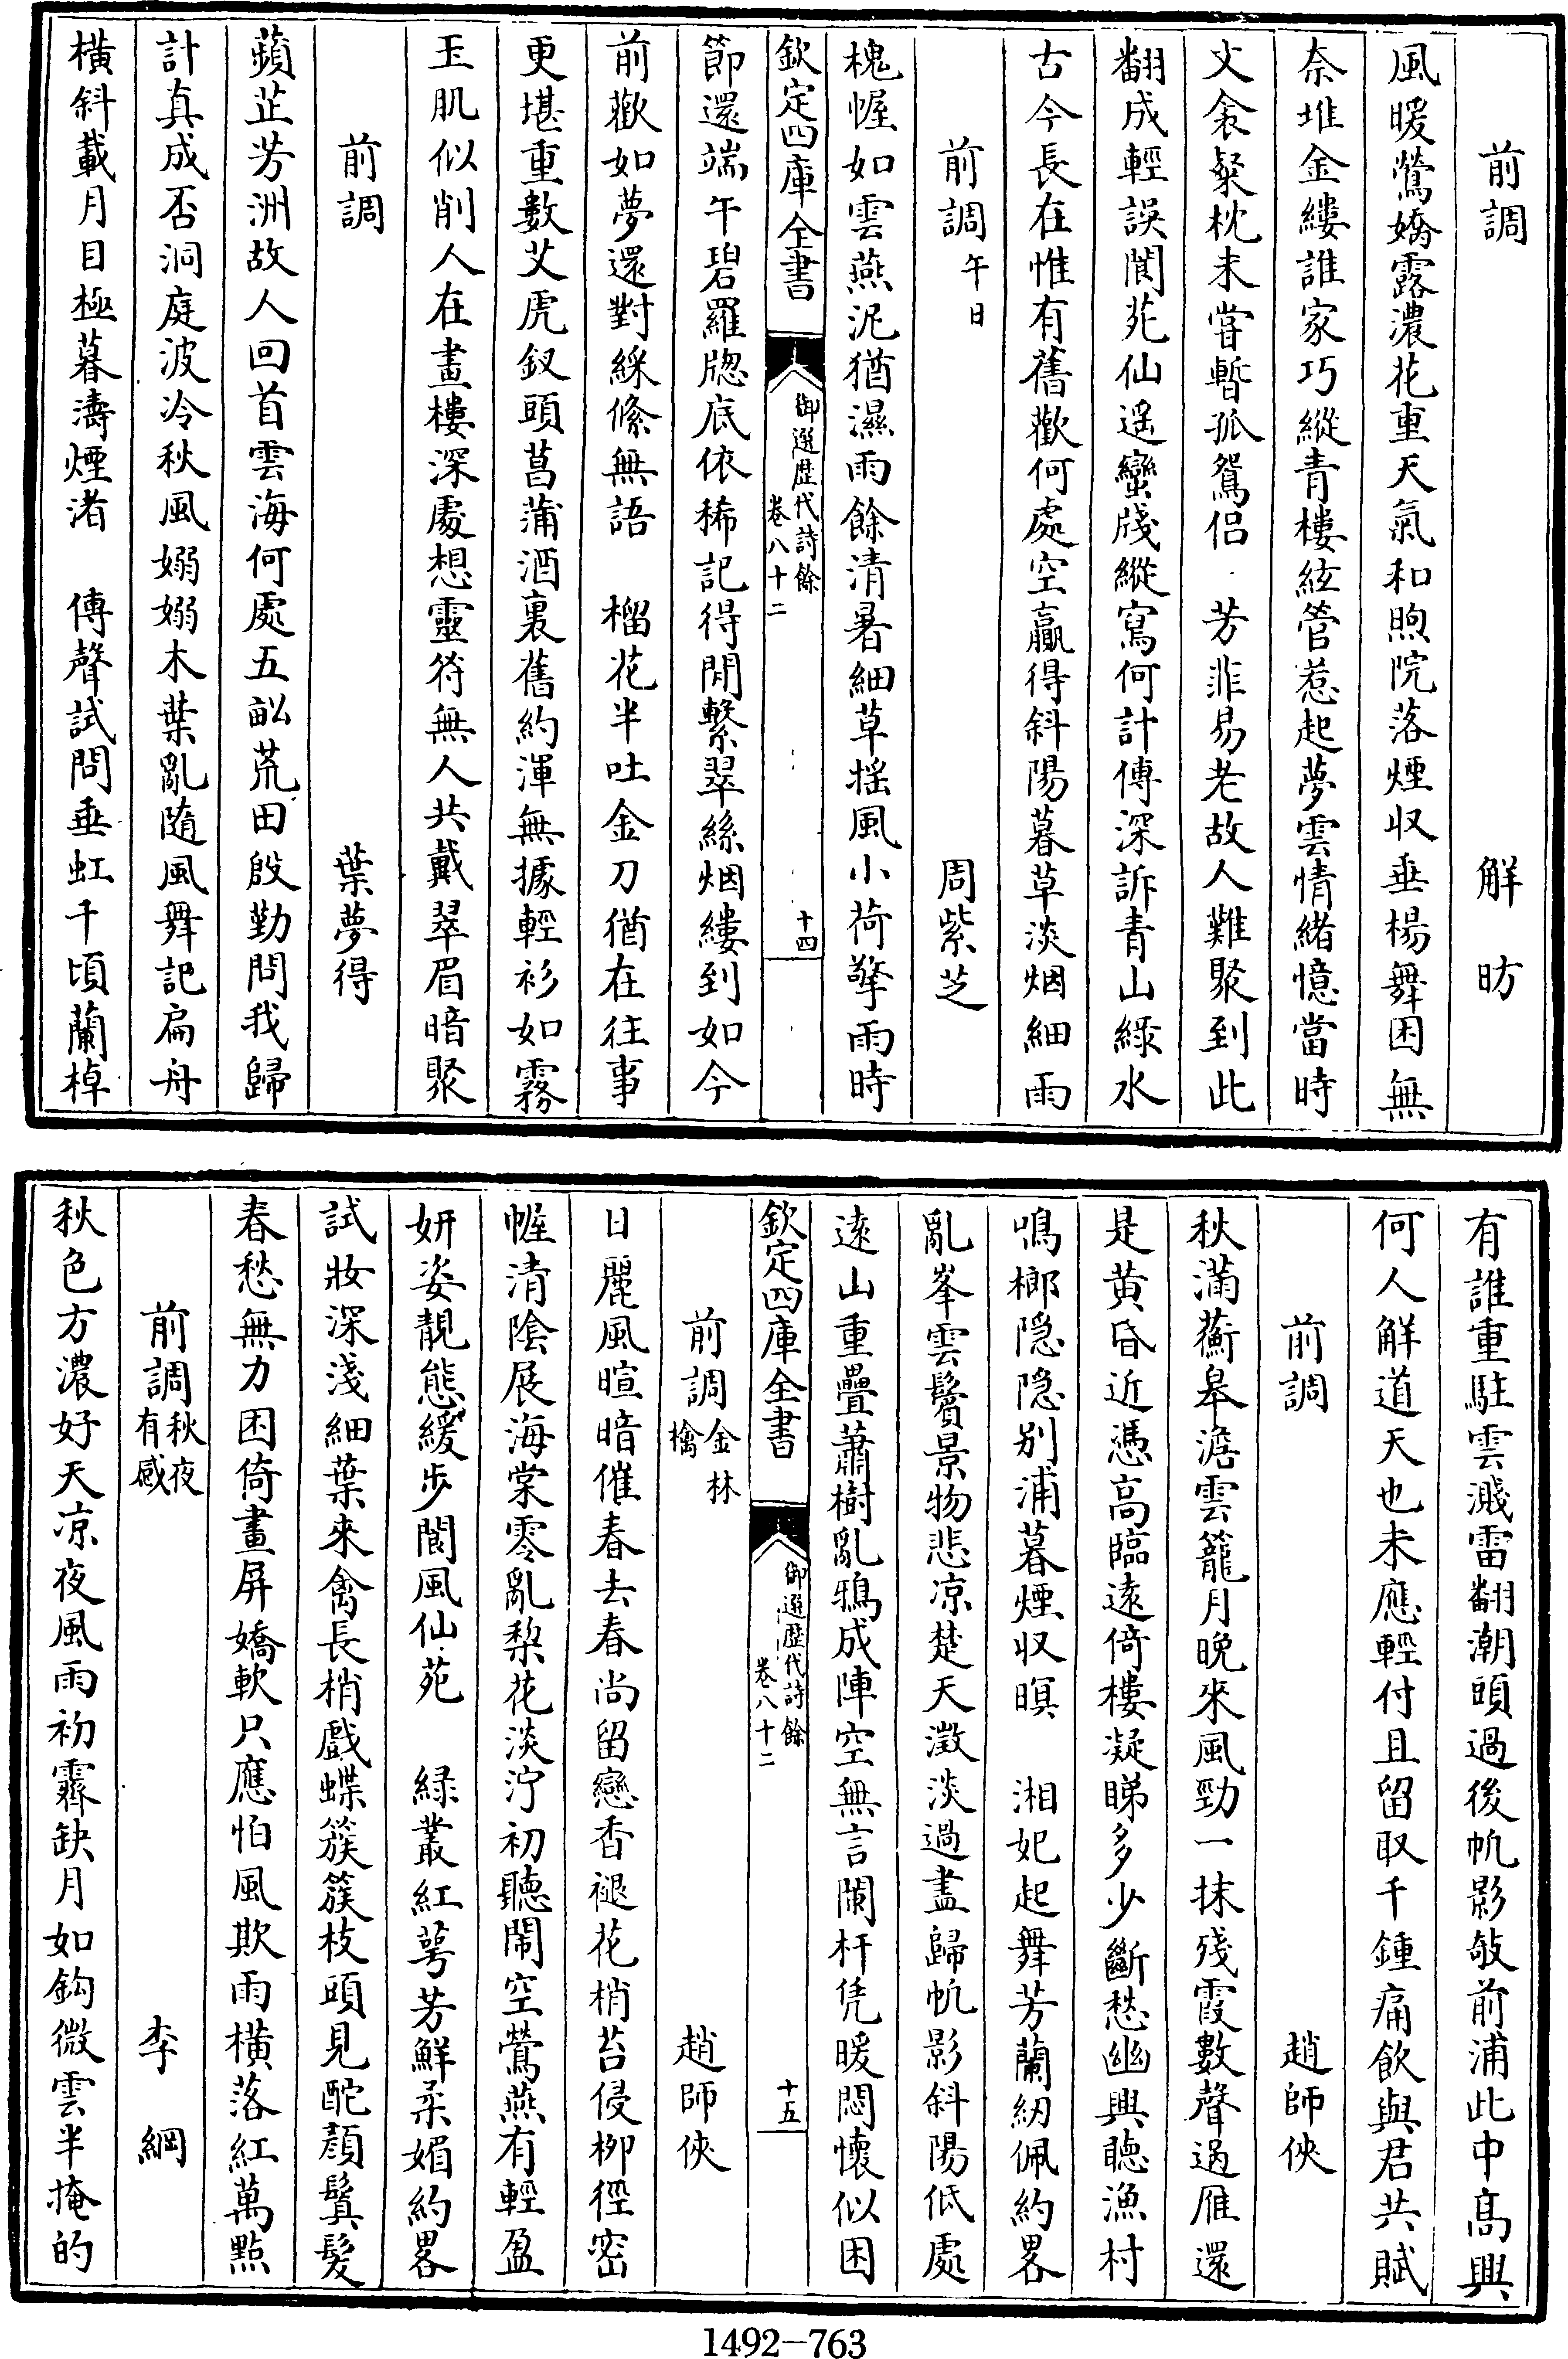 前調　　解昉
風暖鶯嬌露濃花重天氣和煦院落煙収垂楊舞困無
奈堆金縷誰家巧縱青樓絃管惹起夢雲情緒憶當時
文衾粲枕未嘗暫孤鴛侣　芳菲易老故人難聚到此
翻成輕誤閬苑仙遥蠻牋縱寫何計傳深訴青山綠水
古今長在惟有舊歡何處空贏得斜陽暮草淡烟細雨
前調午日　　周紫芝
槐幄如雲燕泥猶濕雨餘清暑細草揺風小荷擎雨時
欽定四庫全書　御選歴代詩餘　卷八十二　十四
節還端午碧羅牕底依稀記得閒繫翠絲烟縷到如今
前歡如夢還對綵絛無語　榴花半吐金刀猶在往事
更堪重數艾虎釵頭菖蒲酒裏舊約渾無據輕衫如霧
玉肌似削人在畫樓深處想靈符無人共戴翠眉暗聚
前調　　葉夢得
蘋芷芳洲故人回首雲海何處五畝荒田殷勤問我歸
計真成否洞庭波冷秋風嫋嫋木葉亂隨風舞記扁舟
橫斜載月目極暮濤煙渚　傳聲試問垂虹千頃蘭棹
有誰重駐雲濺雷翻潮頭過後帆影敧前浦此中高興
何人解道天也未應輕付且留取千鍾痛飲與君共賦
前調　　趙師俠
秋滿蘅皋澹雲籠月晚來風勁一抹殘霞數聲過雁還
是黄昏近憑高臨遠倚樓凝睇多少斷愁幽興聽漁村
鳴榔隠隠别浦暮煙収暝　湘妃起舞芳蘭紉佩約畧
亂峯雲鬢景物悲凉楚天澂淡過盡歸帆影斜陽低處
遠山重疊蕭樹亂鴉成陣空無言闌杆凭暖悶懷似困
欽定四庫全書　御選歴代詩餘　卷八十二　十五
前調金林檎　　趙師俠
日麗風暄暗催春去春尚留戀香褪花梢苔侵栁徑密
幄清陰展海棠零亂梨花淡泞初聽鬧空鶯燕有輕盈
妍姿靚態緩步閬風仙苑　緑叢紅萼芳鮮柔媚約畧
試妝深淺細葉來禽長梢戲蝶簇簇枝頭見酡顔鬒髮
春愁無力困倚畫屏嬌軟只應怕風欺雨橫落紅萬點
前調秋夜有感　　李綱
秋色方濃好天凉夜風雨初霽缺月如鈎微雲半掩的
1492-763